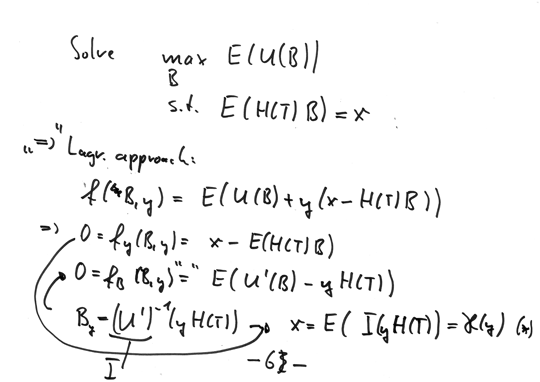 Solve max E(U(B))
B
s.t. E(H(T)B) = x
"⇒" Lagr. approach:
f(B,y) = E(U(B) + y(x - H(T)B))
⇒ 0 = f_y(B,y) = x - E(H(T)B)
0 = f_B(B,y) "=" E(U'(B) - yH(T))
B_y = (U')^{-1}(yH(T)) x = E( I(yH(T)) = X(y) (*)
I
-63-